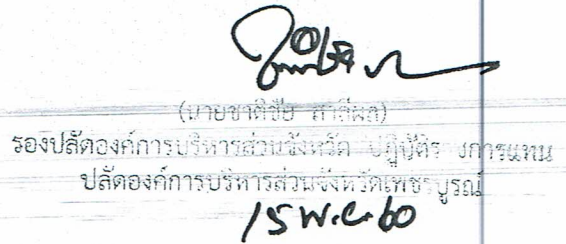 (นายชาติชัย สาลีผล)
รองปลัดองค์การบริหารส่วนจังหวัด ปฏิบัติราชการแทน
ปลัดองค์การบริหารส่วนจังหวัดเพชรบูรณ์
15 พ.ย. 60